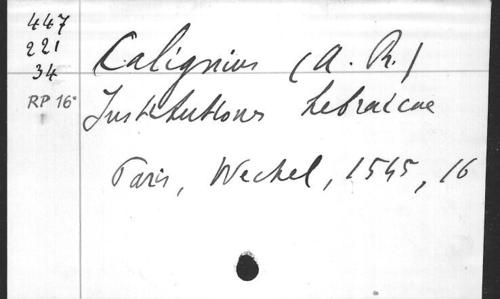 447
221
34
RP 16°
Calignius (A. R.)
Institutiones hebraicae
Paris, Wechel, 1545, 16